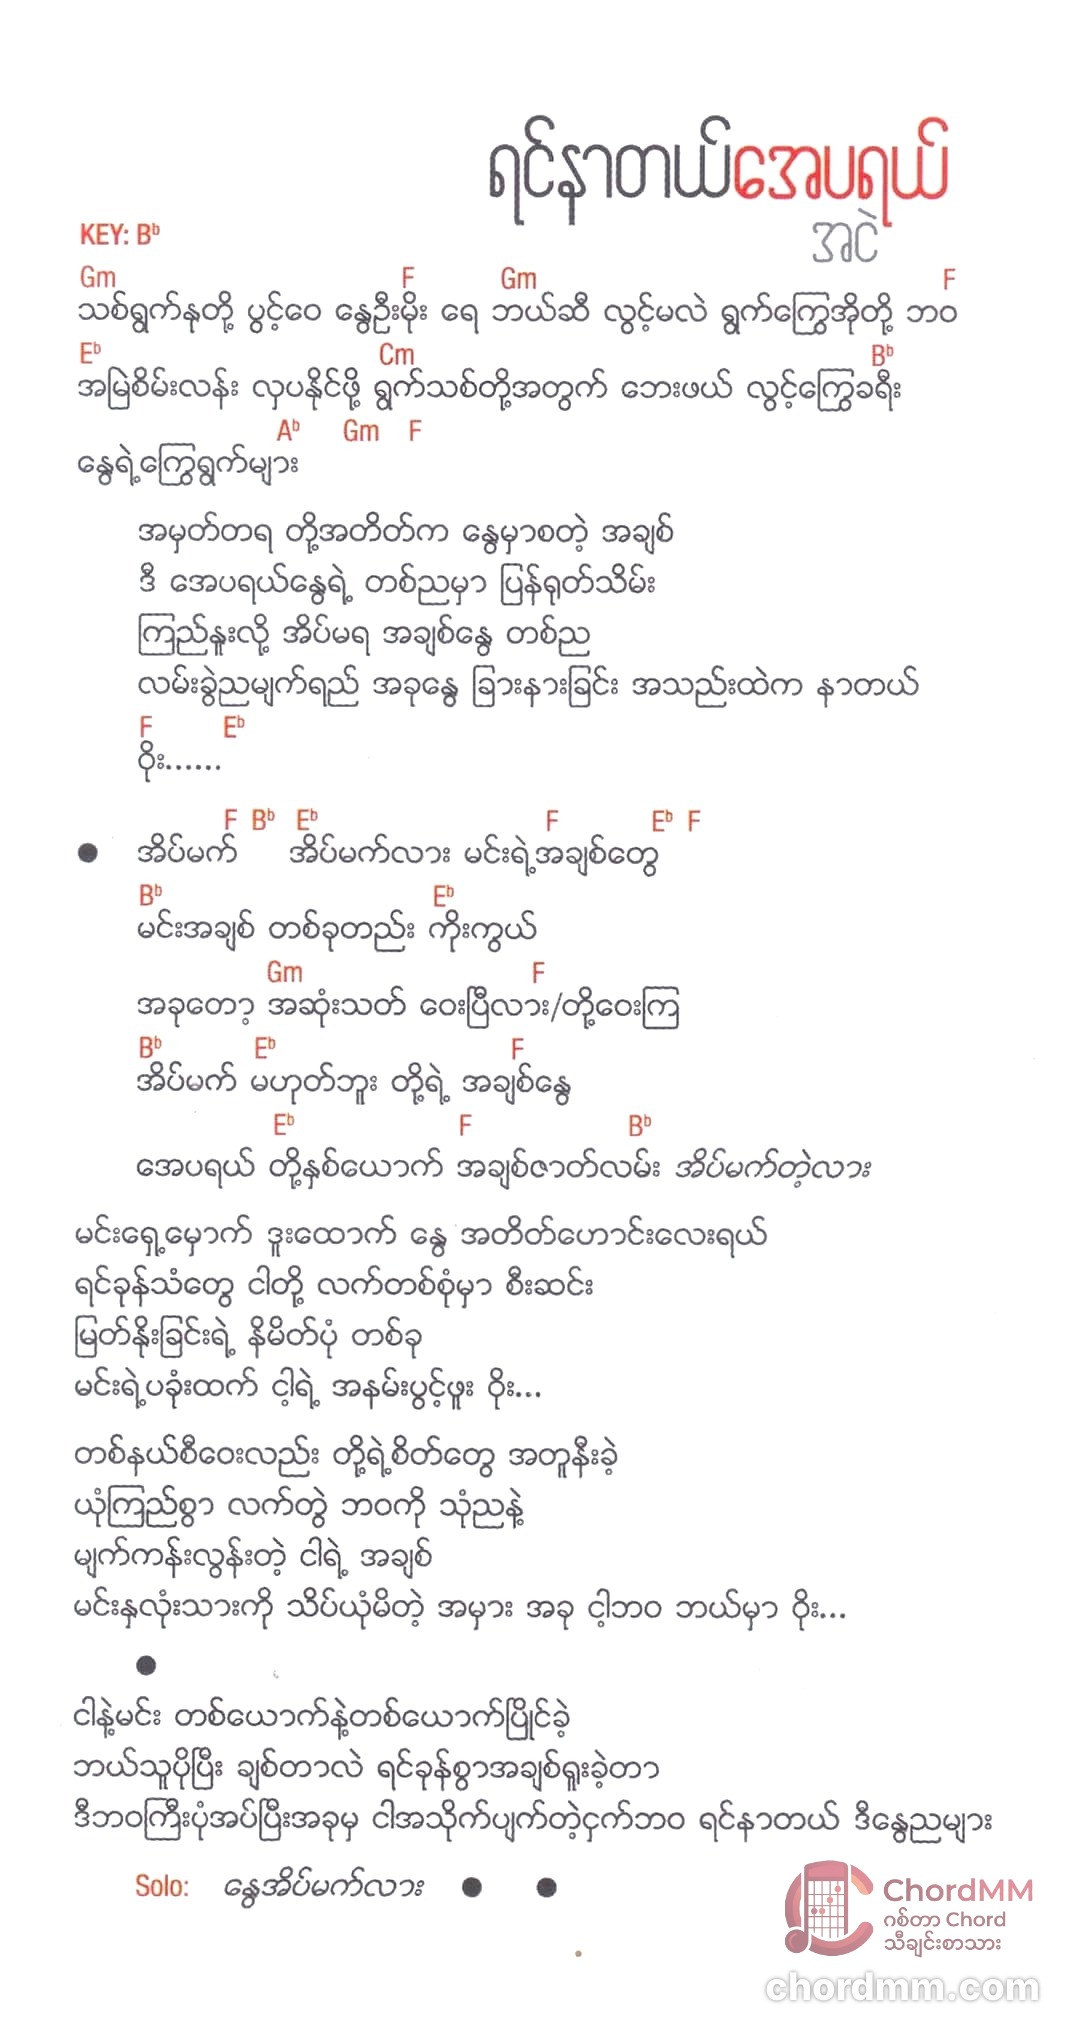 ရင်နာတယ်အေပရယ်
အငဲ
KEY: Bb
Gm F Gm F
သစ်ရွက်နုတို့ ပွင့်ဝေ နွေဦးမိုး ရေ ဘယ်ဆီ လွင့်မလဲ ရွက်ကြွေအိုတို့ ဘဝ
Eb Cm Bb
အမြဲစိမ်းလန်း လှပနိုင်ဖို့ ရွက်သစ်တို့အတွက် ဘေးဖယ် လွင့်ကြွေခရီး
Ab Gm F
နွေရဲ့ကြွေရွက်များ
အမှတ်တရ တို့အတိတ်က နွေမှာစတဲ့ အချစ်
ဒီ အေပရယ်နွေရဲ့ တစ်ညမှာ ပြန်ရုတ်သိမ်း
ကြည်နူးလို့ အိပ်မရ အချစ်နွေ တစ်ည
လမ်းခွဲညမျက်ရည် အခုနွေ ခြားနားခြင်း အသည်းထဲက နာတယ်
F Eb
ဝိုး......
F Bb Eb F Eb F
● အိပ်မက် အိပ်မက်လား မင်းရဲ့အချစ်တွေ
Bb Eb
မင်းအချစ် တစ်ခုတည်း ကိုးကွယ်
Gm F
အခုတော့ အဆုံးသတ် ဝေးပြီလား/တို့ဝေးကြ
Bb Eb F
အိပ်မက် မဟုတ်ဘူး တို့ရဲ့ အချစ်နွေ
Eb F Bb
အေပရယ် တို့နှစ်ယောက် အချစ်ဇာတ်လမ်း အိပ်မက်တဲ့လား
မင်းရှေ့မှောက် ဒူးထောက် နွေ အတိတ်ဟောင်းလေးရယ်
ရင်ခုန်သံတွေ ငါတို့ လက်တစ်စုံမှာ စီးဆင်း
မြတ်နိုးခြင်းရဲ့ နိမိတ်ပုံ တစ်ခု
မင်းရဲ့ပခုံးထက် ငါ့ရဲ့ အနမ်းပွင့်ဖူး ဝိုး...
တစ်နယ်စီဝေးလည်း တို့ရဲ့စိတ်တွေ အတူနီးခဲ့
ယုံကြည်စွာ လက်တွဲ ဘဝကို သုံညနဲ့
မျက်ကန်းလွန်းတဲ့ ငါရဲ့ အချစ်
မင်းနှလုံးသားကို သိပ်ယုံမိတဲ့ အမှား အခု ငါ့ဘဝ ဘယ်မှာ ဝိုး...
●
ငါနဲ့မင်း တစ်ယောက်နဲ့တစ်ယောက်ပြိုင်ခဲ့
ဘယ်သူပိုပြီး ချစ်တာလဲ ရင်ခုန်စွာအချစ်ရူးခဲ့တာ
ဒီဘဝကြီးပုံအပ်ပြီးအခုမှ ငါအသိုက်ပျက်တဲ့ငှက်ဘဝ ရင်နာတယ် ဒီနွေညများ
Solo: နွေအိပ်မက်လား ● ●
ChordMM
ဂစ်တာ Chord
သီချင်းစာသား
chordmm.com